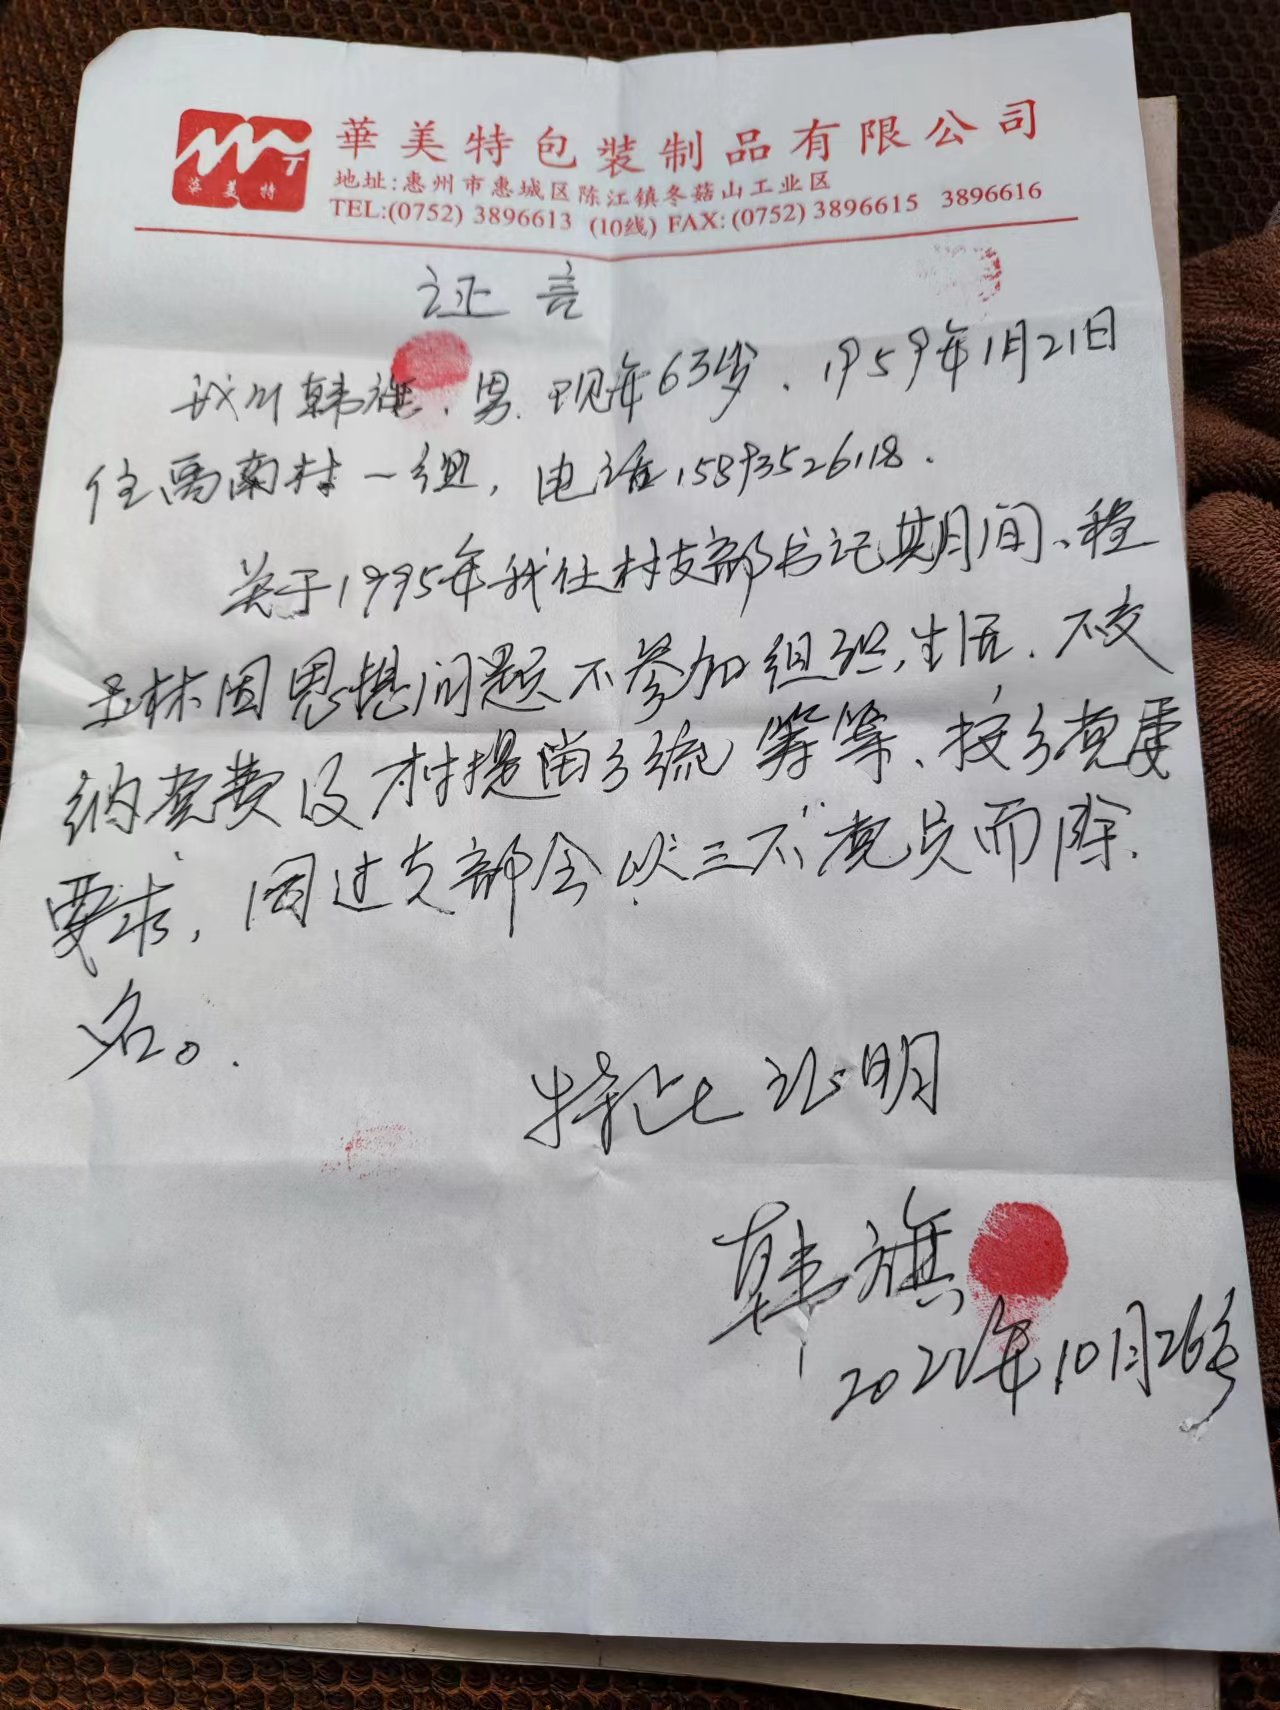 華美特包裝制品有限公司
T
華美特
地址:惠州市惠城区陈江镇冬菇山工业区
TEL:(0752) 3896613 (10线) FAX:(0752) 3896615 3896616
证言
我叫韩旗、男.现年63岁、1959年1月21日
住禹南村一组,电话15893526118.
关于1995年我任村支部书记期间、程
玉林因思想问题不参加组织生活.不交
纳党费及村提留乡统筹等、按乡党委
要求,通过支部会以"三不"党员而除
名。
特此证明
韩旗
2022年10月26号